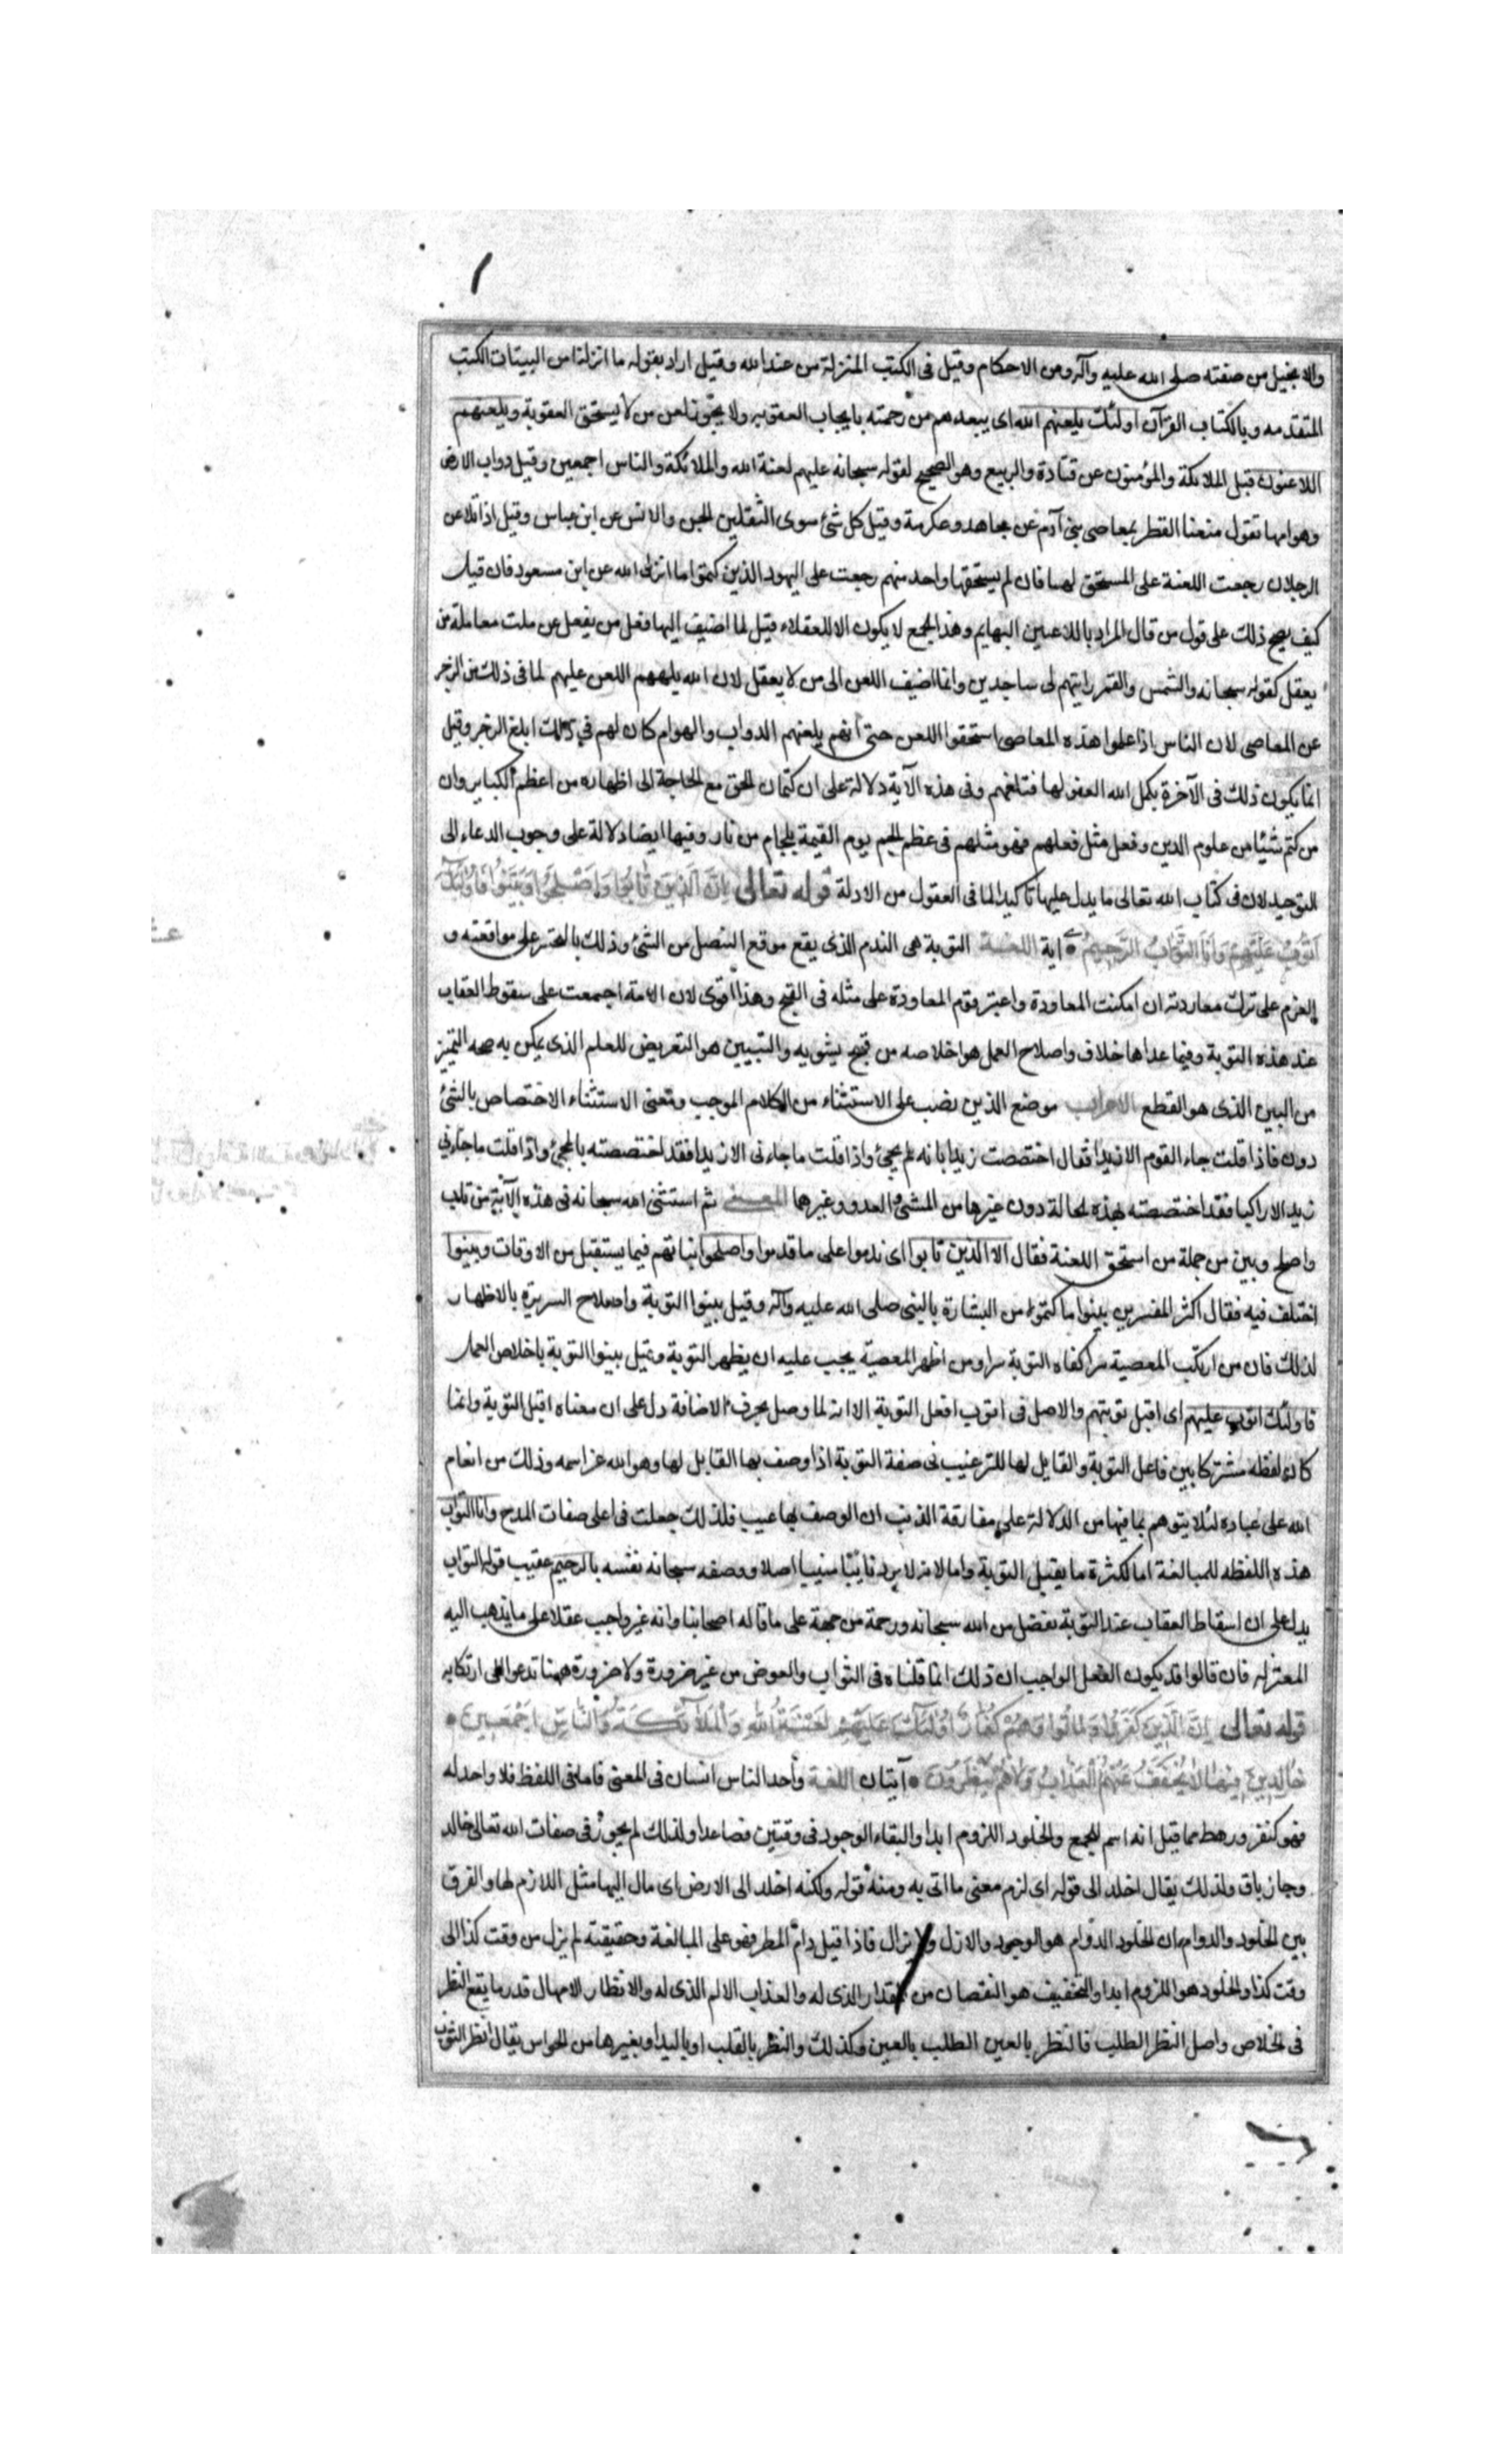 والانجيل من صفته صلى الله عليه وآله ومن الاحكام وقيل فى الكتب المنزلة من عند الله وقيل اراد بقوله ما انزلنا من البينات الكتب
المتقدمه وبالكتاب القرآن اولئك يلعنهم الله اى يبعدهم من رحمته بايجاب العقوبه ولا يجوز لعن من لا يستحق العقوبة ويلعنهم
اللاعنون قيل الملائكة والمؤمنون عن قتادة والربيع وهو الصحيح لقوله سبحانه عليهم لعنة الله والملائكة والناس اجمعين وقيل دواب الارض
وهوامها تقول منعنا القطر بمعاصى بنى آدم عن مجاهد وعكرمة وقيل كل شئ سوى الثقلين الجن والانس عن ابن عباس وقيل اذا تلاعن
الرجلان رجعت اللعنة على المستحق لها فان لم يستحقها واحد منهم رجعت على اليهود الذين كتموا ما انزل الله عن ابن مسعود فان قيل
كيف يصح ذلك على قول من قال المراد باللاعنين البهايم وهذا الجمع لا يكون الا للعقلاء قيل لما اضيف اليها فعل من يعقل عن ملت معاملة من
يعقل كقوله سبحانه والشمس والقمر رايتهم لى ساجدين وانما اضيف اللعن الى من لا يعقل لان الله يلهمهم اللعن عليهم لما فى ذلك من الزجر
عن المعاصى لان الناس اذا علموا هذه المعاصى استحقوا اللعن حتى انهم يلعنهم الدواب والهوام كان لهم فى ذلك ابلغ الزجر وقيل
انما يكون ذلك فى الآخرة يكمل الله العقو لها فتلعنهم وفى هذه الآية دلالة على ان كتمان الحق مع الحاجة الى اظهاره من اعظم الكباير وان
من كتم شئيا من علوم الدين وفعل مثل فعلهم فهو مثلهم فى عظم الجرم يوم القيمة بلجام من نار وفيها ايضا دلالة على وجوب الدعاء الى
التوحيد لان فى كتاب الله تعالى ما يدل عليها تاكيدا لما فى العقول من الادلة قوله تعالى اِلَّا الَّذِينَ تَابُوا وَاَصْلَحُوا وَبَيَّنُوا فَاُولٰئِكَ
اَتُوبُ عَلَيْهِمْ وَاَنَا التَّوَّابُ الرَّحِيمُ اية اللغة التوبة هى الندم الذى يقع موقع التنصل من الشئ وذلك بالتحسر على مواقعته و
العزم على ترك معاودته ان امكنت المعاودة واعتبر قوم المعاودة على مثله فى القبح وهذا اقوى لان الامة اجمعت على سقوط العقاب
عند هذه التوبة وفيما عداها خلاف واصلاح العمل هو اخلاصه من قبح يشوبه والتبيين هو التعريض للعلم الذى يمكن به صحه التميز
من البين الذى هو القطع الاعراب موضع الذين نصب على الاستثناء من الكلام الموجب ومعنى الاستثناء الاختصاص بالشئ
دون فاذا قلت جاء القوم الا زيدا فقال اختصصت زيدا بانه لم يجئ واذا قلت ما جاءنى الا زيدا فقد اختصصته بالمجئ واذا قلت ما جاءنى
زيد الا راكبا فقد اختصصته بهذه الحالة دون غيرها من المشى والعدو وغيرهما المعنى ثم استثنى الله سبحانه فى هذه الآية من تاب
واصلح وبين من جملة من استحق اللعنة فقال الا الذين تابوا اى ندموا على ما قدموا واصلحوا نياتهم فيما يستقبل من الاوقات وبينوا
اختلف فيه فقال اكثر المفسرين بينوا ما كتموه من البشارة بالنبى صلى الله عليه وآله وقيل بينوا التوبة واصلاح السريرة بالاظهار
لذلك فان من ارتكب المعصية سرا كفاه التوبة سرا ومن اظهر المعصية يجب عليه ان يظهر التوبة وقيل بينوا التوبة باخلاص العمل
فاولئك اتوب عليهم اى اقبل توبتهم والاصل فى اتوب افعل التوبة الا انه لما وصل بحرف الاضافة دل على ان معناه اقبل التوبة وانما
كان لفظه مشتركا بين فاعل التوبة والقابل لها للترغيب فى صفة التوبة اذا وصف بها القابل لها وهو الله عز اسمه وذلك من انعام
الله على عباده لئلا يتوهم بما فيها من الدلالة على مفارقة الذنب ان الوصف بها عيب فلذلك جعلت فى اعلى صفات المدح وانا التواب
هذه اللفظه للمبالغة اما لكثرة ما يقبل التوبة واما لانه لا يرد تائبا منيبا اصلا ووصفه سبحانه نفسه بالرحيم عقيب قوله التواب
يدل على ان اسقاط العقاب عند التوبة تفضل من الله سبحانه ورحمة من جهة على ما قاله اصحابنا وانه غير واجب عقلا على ما يذهب اليه
المعتزله فان قالوا قد يكون الفعل الواجب ان ذلك انما قلناه فى الثواب والعوض من غير ضرورة ولا ضرورة ههنا تدعوا الى ارتكابه
قوله تعالى اِنَّ الَّذِينَ كَفَرُوا وَمَاتُوا وَهُمْ كُفَّارٌ اُولٰئِكَ عَلَيْهِمْ لَعْنَةُ اللهِ وَالْمَلَائِكَةِ وَالنَّاسِ اَجْمَعِينَ
خَالِدِينَ فِيهَا لَا يُخَفَّفُ عَنْهُمُ الْعَذَابُ وَلَا هُمْ يُنْظَرُونَ آيتان اللغة واحد الناس انسان فى المعنى فاما فى اللفظ فلا واحد له
فهو كنفر ورهط مما قيل انه اسم للجمع والخلود اللزوم ابدا والبقاء الوجود فى وقتين فصاعدا ولذلك لم يجوز فى صفات الله تعالى خالد
وجاز باق ولذلك يقال اخلد الى قوله اى لزم معنى ما اتى به ومنه قوله ولكنه اخلد الى الارض اى مال اليها مثل اللازم لها والفرق
بين الخلود والدوام ان الخلود الدوام هو الوجود والازل ولا يزال فاذا قيل دام المطر فهو على المبالغة وحقيقته لم يزل من وقت كذا الى
وقت كذا والخلود هو اللزوم ابدا والتخفيف هو النقصان من المقدار الذى له والعذاب الالم الذى له والانظار الامهال قدر ما يقع النظر
فى الخلاص واصل النظر الطلب فالنظر بالعين الطلب بالعين وكذلك والنظر بالقلب او باليد او بغيرها من الحواس يقال انظر الثوب